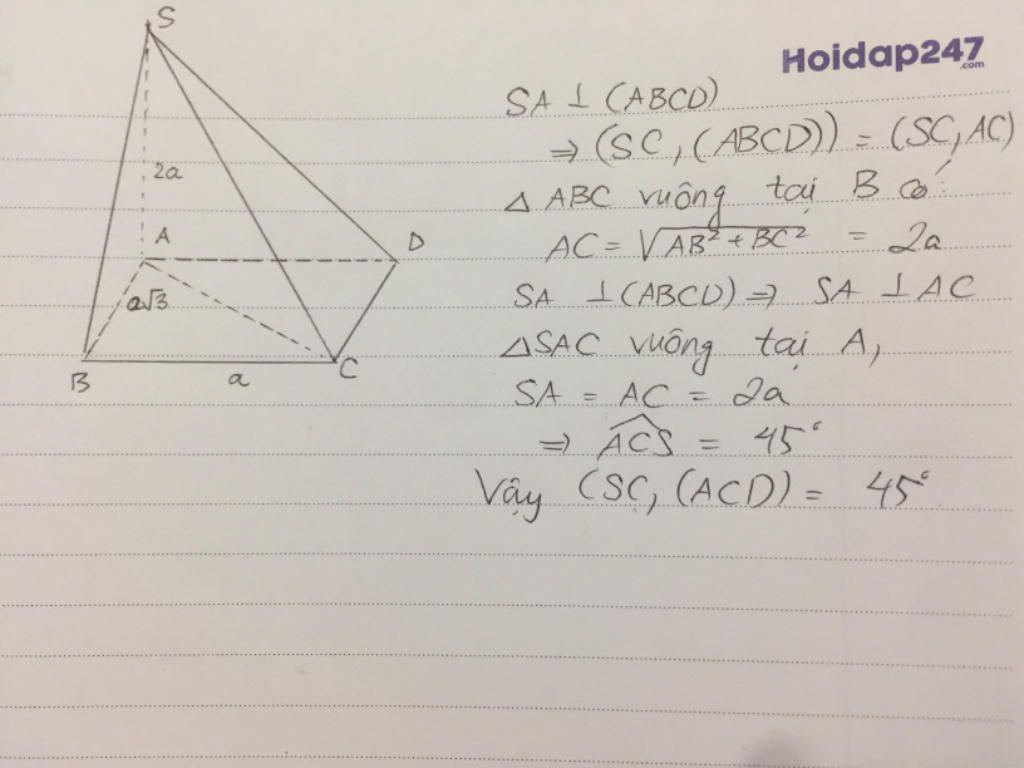 S
Hoidap247
.com
2a
A
D
a√3
B
a
C
SA ⊥ (ABCD)
⇒ (SC, (ABCD)) = (SC, AC)
△ ABC vuông tại B có:
AC = √AB² + BC² = 2a
SA ⊥ (ABCD) ⇒ SA ⊥ AC
△SAC vuông tại A,
SA = AC = 2a
⇒ \widehat{ACS} = 45°
Vậy (SC, (ACD) = 45°